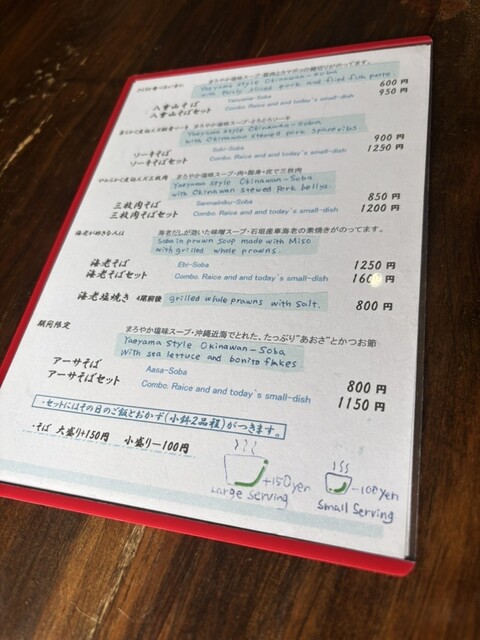 まろやか塩味スープ・豚肉とカマボコの細切りがのってます。
Yaeyama style Okinawan-Soba
with thinly sliced pork and fried fish paste
八重山そば 600円
Yaeyama-Soba
八重山そばセット 950円
Combo. Raice and and today's small-dish
まろやか塩味スープ・とろとろソーキ
Yaeyama style Okinawan-Soba
with Okinawan stewed Pork spareribs
ソーキそば 900円
Soki-Soba
ソーキそばセット 1250円
Combo. Raice and and today's small-dish
やわらかく煮込んだ三枚肉 まろやか塩味スープ・肉・脂身・皮で三枚肉
Yaeyama style Okinawan-Soba
with Okinawan stewed Pork bellys.
三枚肉そば 850円
Sanmainiku-Soba
三枚肉そばセット 1200円
Combo. Raice and and today's small-dish
海老が好きな人は 海老だしが効いた味噌スープ・石垣産車海老の素焼きがのってます。
Soba in prawn soup made with Miso
with grilled whole prawns.
海老そば 1250円
Ebi-Soba
海老そばセット 1600円
Combo. Raice and and today's small-dish
海老塩焼き 4尾前後 grilled whole prawns with salt. 800円
期間限定 まろやか塩味スープ・沖縄近海でとれた、たっぷり"あおさ"とかつお節
Yaeyama style Okinawan-Soba
With sea lettuce and bonito flakes
アーサそば 800円
Aasa-Soba
アーサそばセット 1150円
Combo. Raice and and today's small-dish
・セットにはその日のご飯とおかず(小鉢2品程)がつきます。
・そば 大盛り+150円 小盛り−100円
+150yen
Large Serving
−100yen
Small Serving